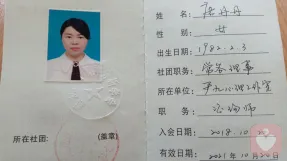 姓名：唐丹丹
性别：女
出生日期：1982.2.3
社团职务：常务理事
所在单位：
职务：咨询师
入会日期：2018.10.2
有效日期：2021年10月20日
所在社团：（盖章）